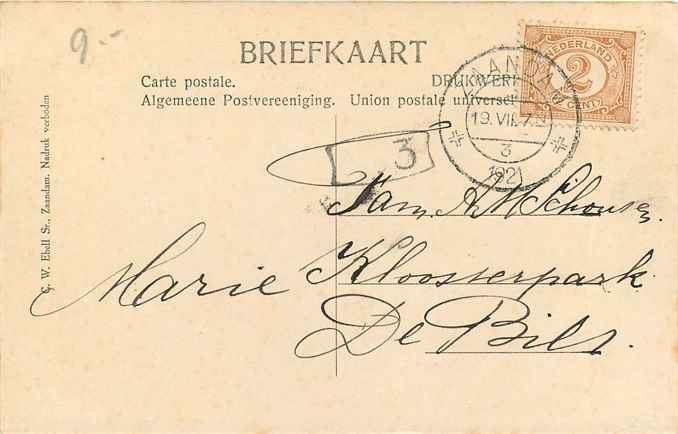 9.-
BRIEFKAART
Carte postale. DRUKWERK
Algemeene Postvereeniging. Union postale universel
NEDERLAND
2
CENT
ZAANDAM
19.VII.
3
1921
3
Fam. A. M. Schouten.
Marie Kloosterpark
De Bilt.
C. W. Ebell Sr., Zaandam. Nadruk verboden